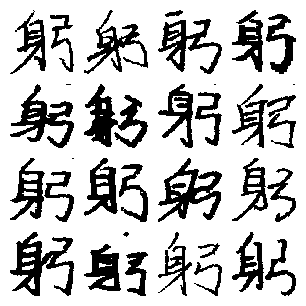 躬躬躬躬
躬躬躬躬
躬躬躬躬
躬躬躬躬